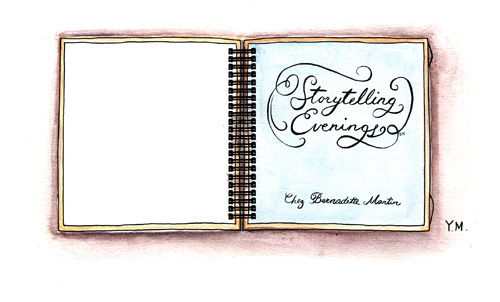 Storytelling
Evenings
Chez Bernadette Martin
Y.M.